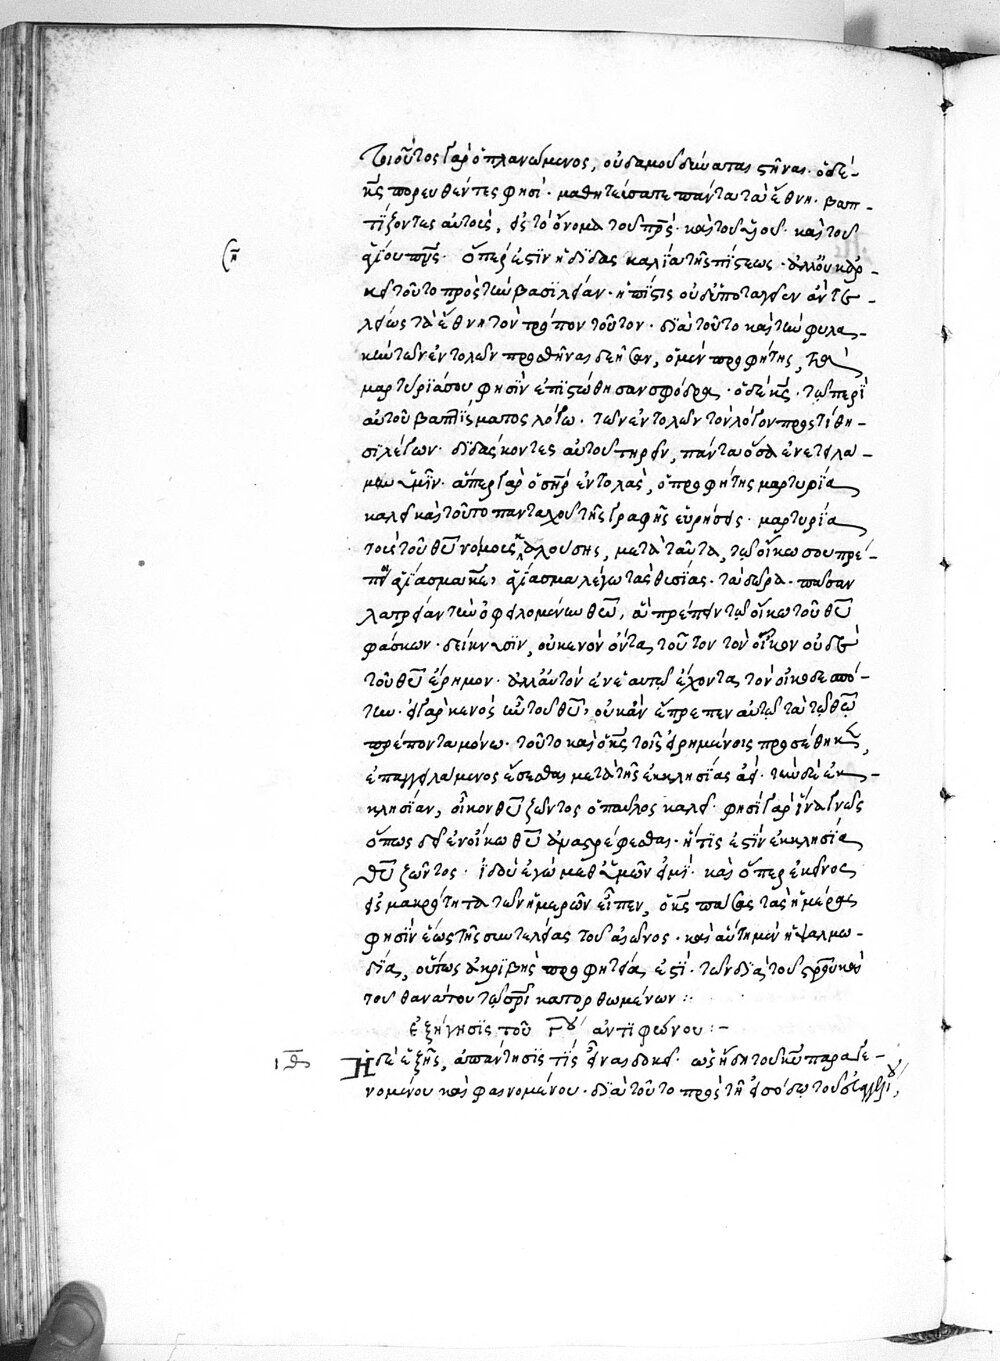 τοιοῦτος γὰρ ὁ πλανώμενος, οὐδαμοῦ δυνάται στῆναι. ὁ δὲ
κς πορευθέντες φησί. μαθητεύσατε πάντα τὰ ἔθνη. βαπ-
τίζοντες αὐτοὺς, εἰς τὸ ὄνομα τοῦ πρς. καὶ τοῦ υἱοῦ. καὶ τοῦ
ἁγίου πνς. ὅπερ ἐστὶν ἡ διδασκαλία τῆς πίστεως. ἀλλ' οὐκ ἀρ-
κεῖ τοῦτο πρὸς τὴν βασιλείαν. ἡ πίστις οὐδ' ὑποταγεῖεν ἂν τε-
λείως τὰ ἔθνη τὸν τρόπον τοῦτον. διὰ τοῦτο καὶ τὴν φυλα-
κὴν τῶν ἐντολῶν προσθῆναι δεῆσαν, ὁ μὲν προφήτης, τὰ
μαρτύριά σου φησὶν ἐπιστώθησαν σφόδρα. ὁ δὲ κς. τῷ περὶ
αὐτοῦ βαπτίσματος λόγω. τῶν ἐντολῶν τὸν λόγον προστίθη-
σι λέγων. διδάσκοντες αὐτοὺς τηρεῖν, πάντα ὅσα ἐνετειλά-
μην ὑμῖν. ἅπερ γὰρ ὁ σηρ ἐντολὰς, ὁ προφήτης μαρτύρια
καλεῖ καὶ τοῦτο πανταχοῦ τῆς γραφῆς εὑρήσεις. μαρτύρια
τοὺς τοῦ θυ νόμους καλούσης, μετὰ ταῦτα, τῷ οἴκω σου πρέ-
πει ἁγίασμα κε, ἁγίασμα λέγω τὰς θυσίας. τὰ δῶρα. πᾶσαν
λατρείαν τὴν ὀφειλομένην θω, ἃ πρέπειν τῷ οἴκω τοῦ θυ
φάσκων. δείκνυσιν, οὐ κενὸν ὄντα, τοῦτον τὸν οἶκον οὐδὲ
τοῦ θυ ἔρημον. ἀλλ' αὐτὸν ἐν ἑαυτῷ ἔχοντα, τὸν οἰκοδεσπό-
την. εἰ γὰρ κενὸς ὢν τοῦ θυ, οὐκ ἂν ἔπρεπεν αὐτῷ τὰ τῷ θω
πρέποντα μόνω. τοῦτο καὶ ὁ κς τοῖς εἰρημένοις προσέθηκε,
ἐπαγγειλάμενος ἔσεσθαι μετὰ τῆς ἐκκλησίας ἀεί. τὴν δὲ ἐκ-
κλησίαν, οἶκον θυ ζῶντος ὁ παῦλος καλεῖ. φησὶ γὰρ ἵνα γνῷς
ὅπως δεῖ ἐν οἴκω θυ ἀναστρέφεσθαι. ἥτις ἐστὶν ἐκκλησία
θυ ζῶντος. ἰδοὺ ἐγὼ μεθ' ὑμῶν εἰμί. καὶ ὅπερ ἐκεῖνος
εἰς μακρότητα τῶν ἡμερῶν εἶπεν, ὁ κς πάσας τὰς ἡμέρας
φησὶν ἕως τῆς συντελείας τοῦ αἰῶνος. καὶ αὕτη μὲν ἡ ψαλμω-
δία, οὕτως ἀκριβὴς προφητεία ἐστί. τῶν διὰ τοῦ στρου καὶ
τοῦ θανάτου τῷ σρι κατορθωμένων :.
ἐξήγησις τοῦ γου ἀντιφώνου :-
Ἡ δὲ ἑξῆς, ἀπάντησίς τις εἶναι δοκεῖ. ὡς ἤδη τοῦ κυ παραγε-
νομένου καὶ φαινομένου. διὰ τοῦτο πρὸς τῇ εἰσόδω τοῦ εὐαγγελίου,